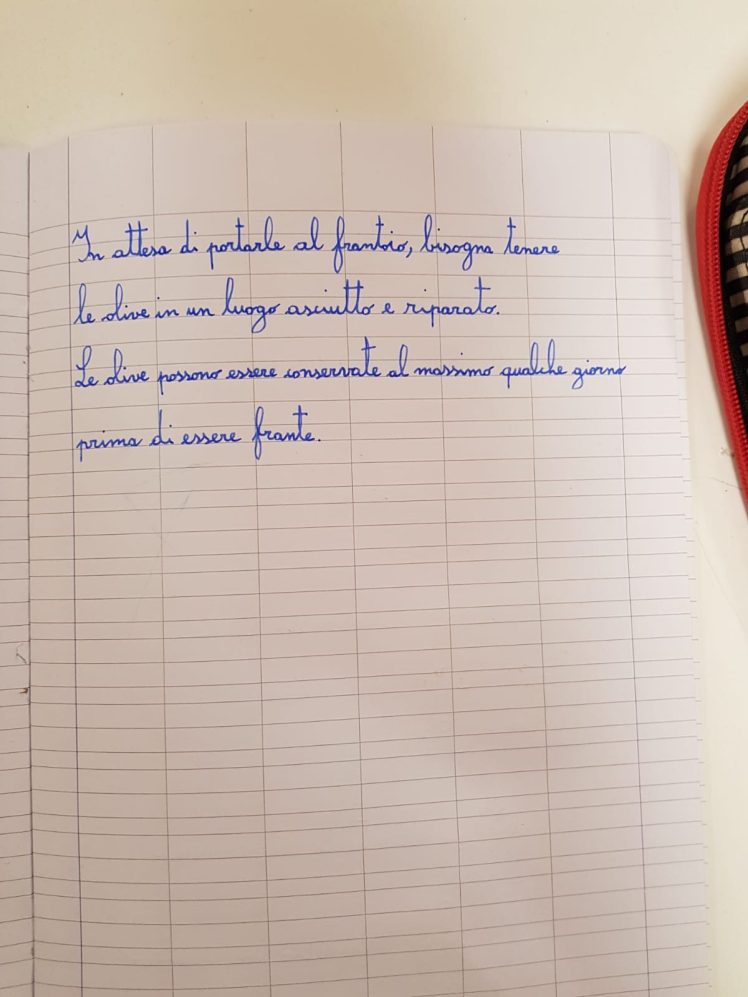 In attesa di portarle al frantoio, bisogna tenere
le olive in un luogo asciutto e riparato.
Le olive possono essere conservate al massimo qualche giorno
prima di essere frante.